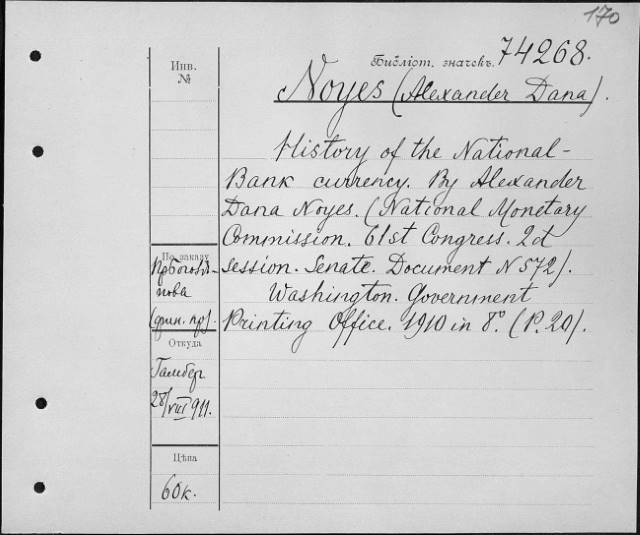 170
Библіот. значекъ. 74268.
Инв.
№
Noyes (Alexander Dana).
History of the National-
Bank currency. By Alexander
Dana Noyes. (National Monetary
Commission. 61st Congress. 2d
session. Senate. Document N 572).
Washington. Government
Printing Office. 1910 in 8.° (P. 20).
По заказу
нова
(фин. пр).
Откуда
Гамбер
28/VIII 911.
Цѣна
60к.